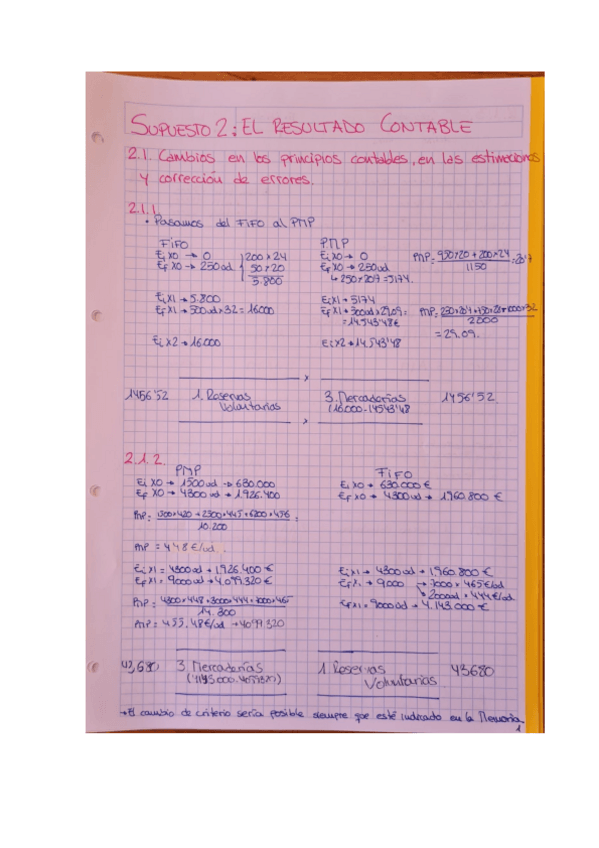 SUPUESTO 2: EL RESULTADO CONTABLE
2.1. Cambios en los principios contables, en las estimaciones
y corrección de errores.
2.1.1.
• Pasamos del FIFO al PMP
FIFO
Ei X0 → 0
Ef X0 → 250 ud
200 x 24
50 x 20
5.800
Ei X1 → 5.800
Ef X1 → 500 ud x 32 = 16000
Ei X2 → 16.000
PMP
Ei X0 → 0
Ef X0 → 250 ud
↳ 250 x 20'7 = 5174.
Ei X1 → 5174
= 14.543'48 €
Ei X2 → 14.543'48
PMP = 950 x 20 + 200 x 24
1150
= 29.09.
x
1456'52 1. Reservas Voluntarias
3. Mercaderías 1456'52
(16.000 - 14543'48
2.1.2.
PMP
Ei X0 → 1500 ud → 630.000
Ef X0 → 4300 ud → 1.926.400
10.200
PMP = 448 €/ud.
Ei X1 = 4300 ud → 1.926.400 €
Ef X1 = 9000 ud → 4.099.320 €
PMP = 4300 x 448 + 3000 x 444 + 7000 x 465
14.300
PMP = 455,48 €/ud → 4099.320
FIFO
Ei X0 → 630.000 €
Ef X0 → 4300 ud → 1960.800 €
Ei X1 → 4300 ud → 1.960.800 €
Ef X1 → 9.000 → 7000 x 465 €/ud
2000 ud x 444 €/ud
Ef X1 = 9000 ud → 4.143.000 €
43,680 3. Mercaderías
1. Reservas Voluntarias 43680
→ El cambio de criterio sería posible siempre que esté indicado en la Memoria
1